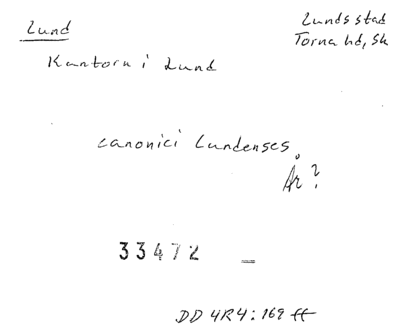 Lund
Lunds stad
Torna hd, Sk
Kantorn i Lund
canonici Lundenses
År?
33472 _
DD 4R4: 169 ff